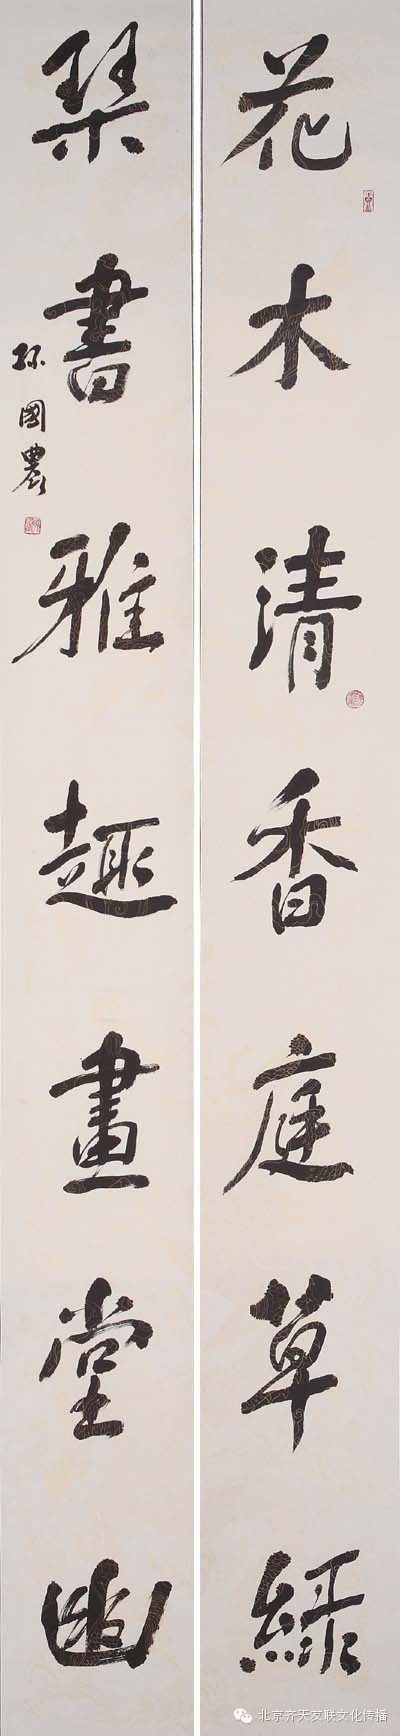 花木清香庭草綠
琹書雅趣畫堂幽
孫國農
北京齐天友联文化传播